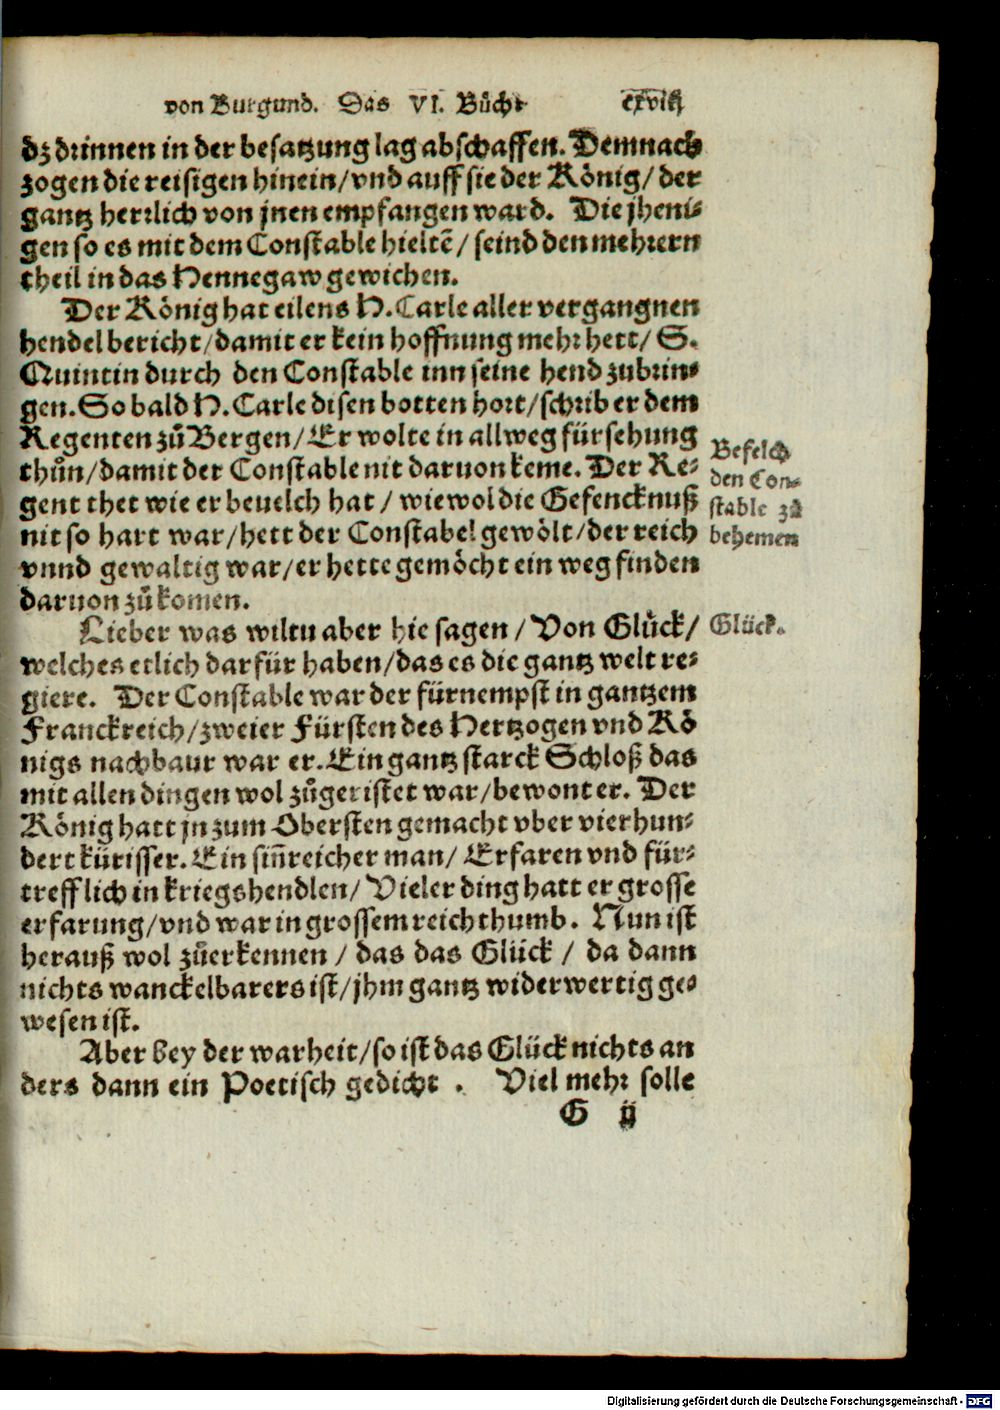 von Burgund. Das VI. Bůch.
dz drinnen in der besatzung lag abschaffen. Demnach
zogen die reisigen hinein/vnd auff sie der König/der
gantz herrlich von jnen empfangen ward. Die jheni-
gen so es mit dem Constable hieltẽ/seind den mehrern
theil in das Hennegaw gewichen.
Der König hat eilens H. Carle aller vergangnen
hendel bericht/damit er kein hoffnung mehr hett/S.
Quintin durch den Constable inn seine hend zubrin-
gen. So bald H. Carle disen botten hort/schrib er dem
Regenten zů Bergen/Er wolte in allweg fürsehung
thůn/damit der Constable nit daruon keme. Der Re-
gent thet wie er beuelch hat/wiewol die Gefencknuß
nit so hart war/hett der Constabel gewölt/der reich
vnnd gewaltig war/er hette gemöcht ein weg finden
daruon zů komen.
Befelch
den Con-
stable zů
behemen
Lieber was wiltu aber hie sagen/Von Glück/
Glück.
welches etlich darfür haben/das es die gantz welt re-
giere. Der Constable war der fürnempst in gantzem
Franckreich/zweier Fürsten des Hertzogen vnd Kö
nigs nachbaur war er. Ein gantz starck Schloß das
mit allen dingen wol zůgeristet war/bewont er. Der
König hatt jn zum Obersten gemacht vber vierhun-
dert kürisser. Ein siñreicher man/Erfaren vnd für-
trefflich in kriegshendlen/Vieler ding hatt er grosse
erfarung/vnd war in grossem reichthumb. Nun ist
herauß wol zůerkennen/das das Glück/da dann
nichts wanckelbarers ist/jhm gantz widerwertig ge-
wesen ist.
Aber bey der warheit/so ist das Glück nichts an
ders dann ein Poetisch gedicht. Viel mehr solle
G ij
Digitalisierung gefördert durch die Deutsche Forschungsgemeinschaft - DFG